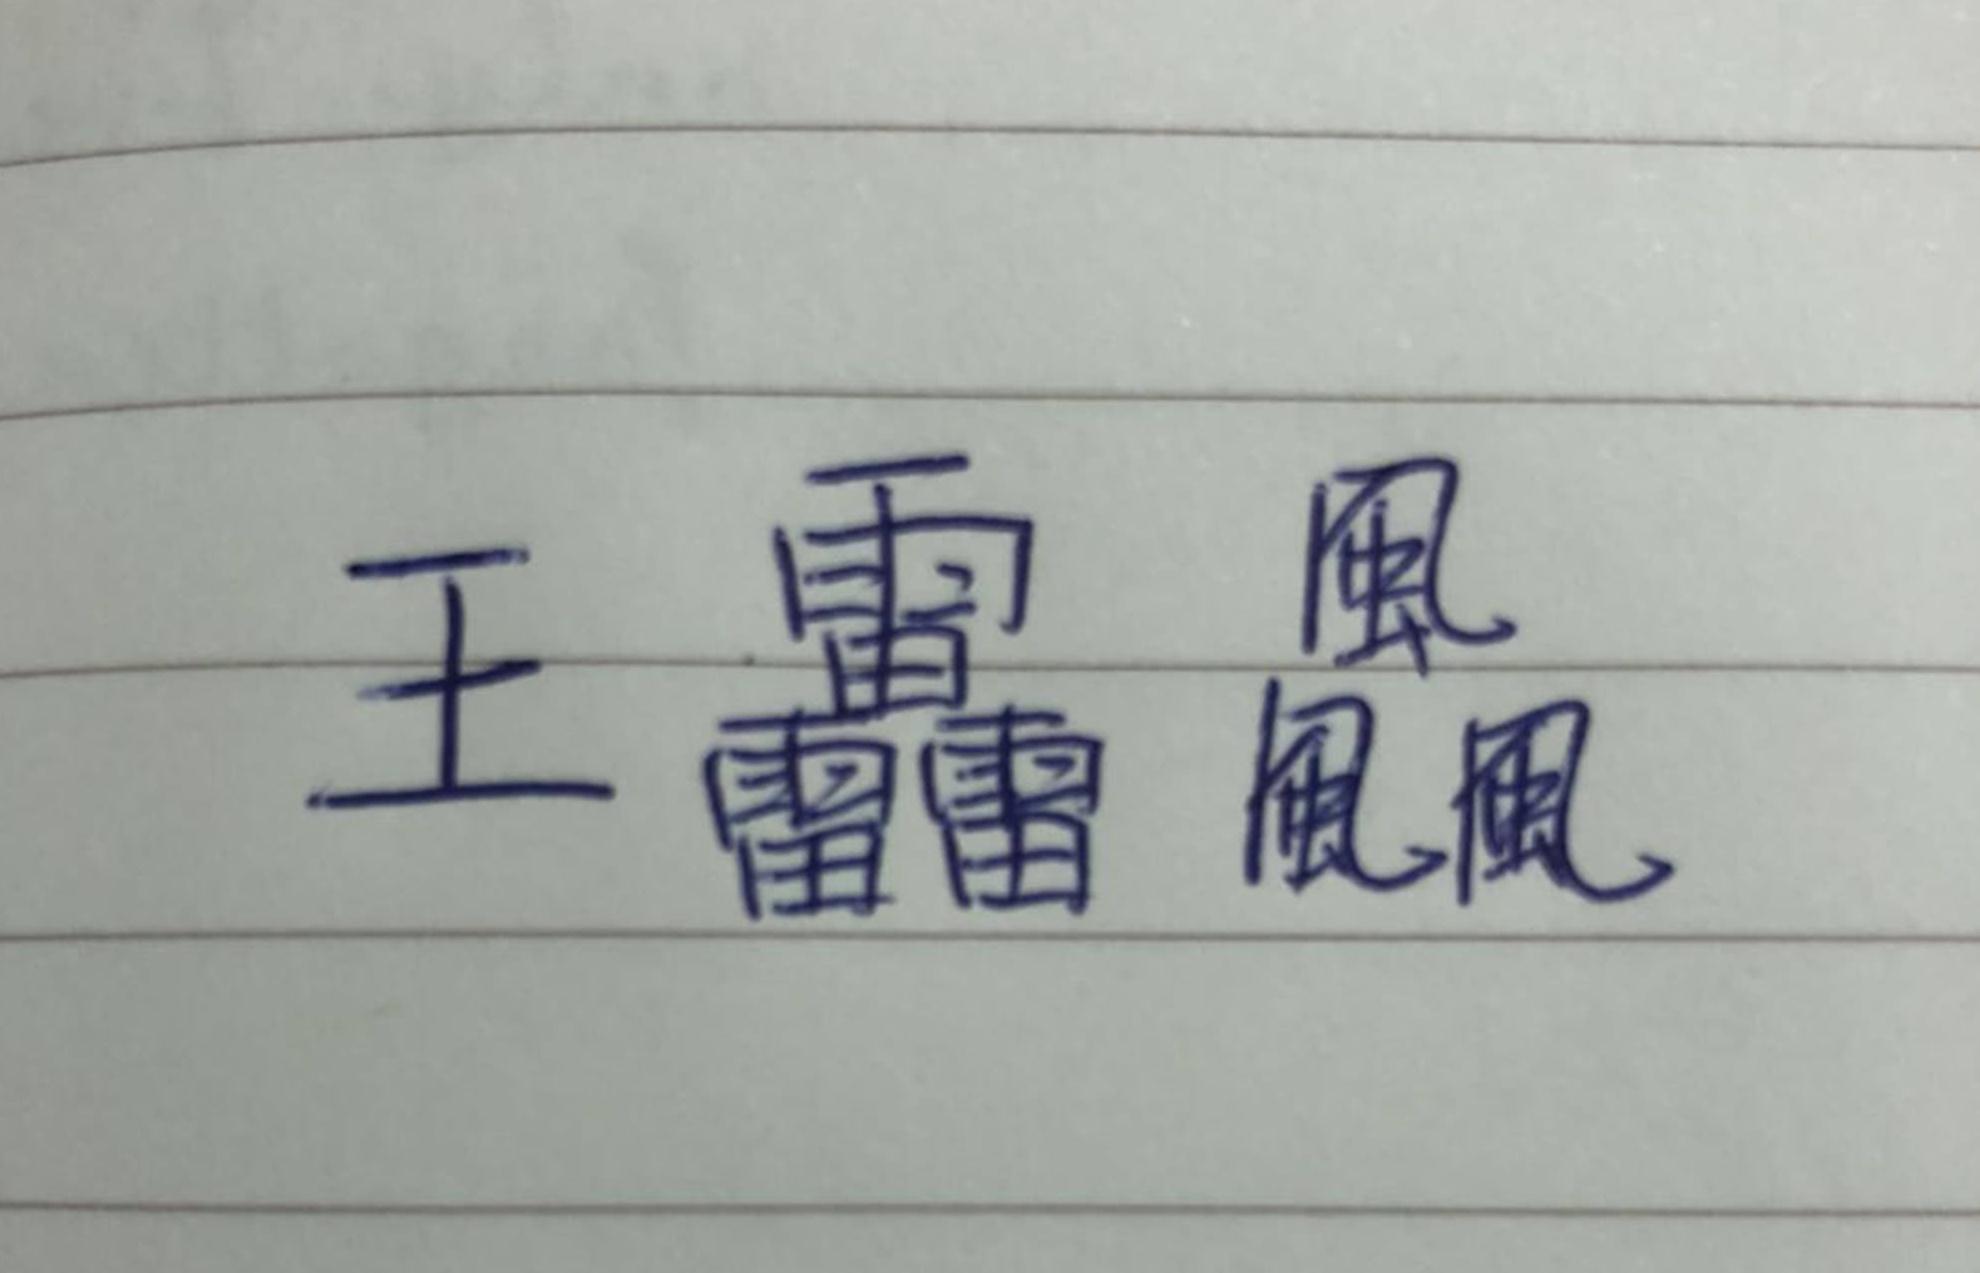 王靐飍